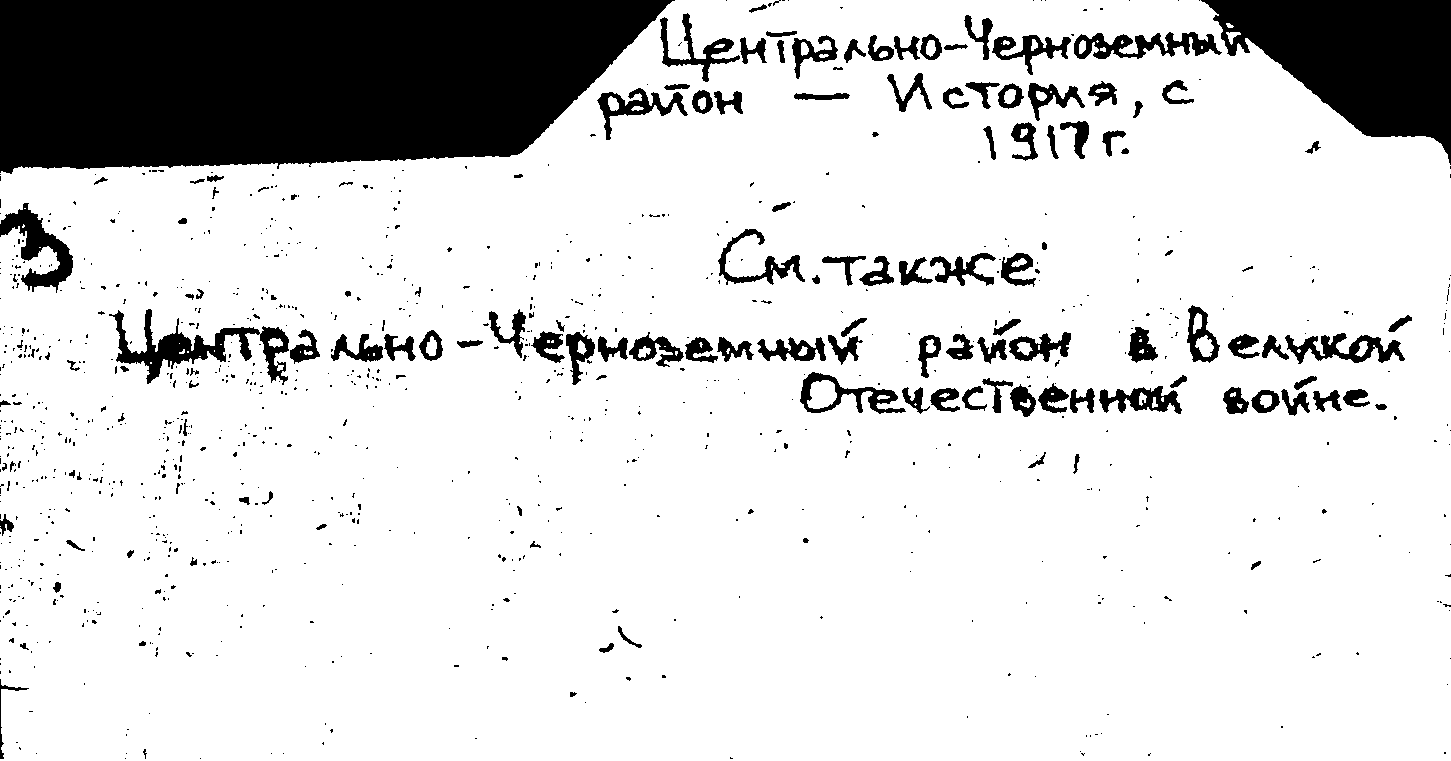 Центрально-Черноземный
район — История, с
1917 г.
3
См. также
Центрально-Черноземный район в Великой
Отечественной войне.